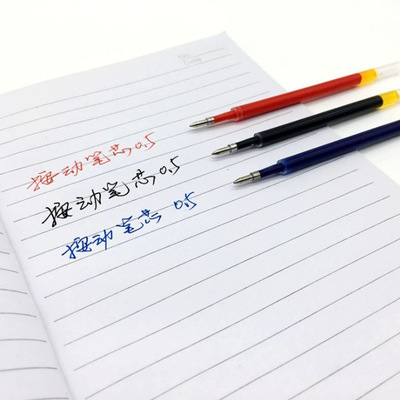 按动笔芯0.5
按动笔芯0.5
按动笔芯 0.5